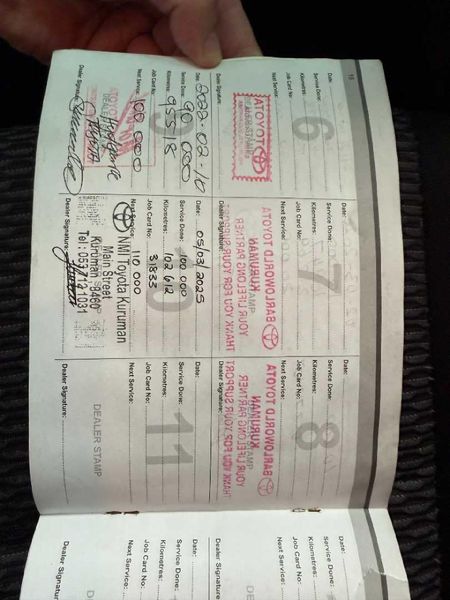 6
Date:
Service Done:
Kilometres:
Job Card No:
Next Service:
TOYOTA
Dealer Signature:
7
Date:
Service Done:
Kilometres:
Job Card No:
Next Service:
BARLOWORLD TOYOTA
KURUMAN
YOUR LIFELONG PARTNER
THANK YOU FOR YOUR SUPPORT
Dealer Signature:
8
Date:
Service Done:
Kilometres:
Job Card No:
Next Service:
BARLOWORLD TOYOTA
KURUMAN
YOUR LIFELONG PARTNER
THANK YOU FOR YOUR SUPPORT
Dealer Signature:
9
Date: 2022-02-10
Service Done: 90 000
Kilometres: 95518
Job Card No:
Next Service: 100 000
Dealer Signature:
Date: 05/03/2025
Service Done: 100 000
Kilometres: 102 612
Job Card No: 31883
Next Service: 110 000
NMI Toyota Kuruman
Main Street
Kuruman 9460
Dealer Signature:
11
Date:
Service Done:
Kilometres:
Job Card No:
Next Service:
DEALER STAMP
Dealer Signature:
Date:
Service Done:
Kilometres:
Job Card No:
Next Service:
Dealer Signature
Date:
Service Done:
Kilometres:
Job Card No:
Next Service:
Dealer Signature